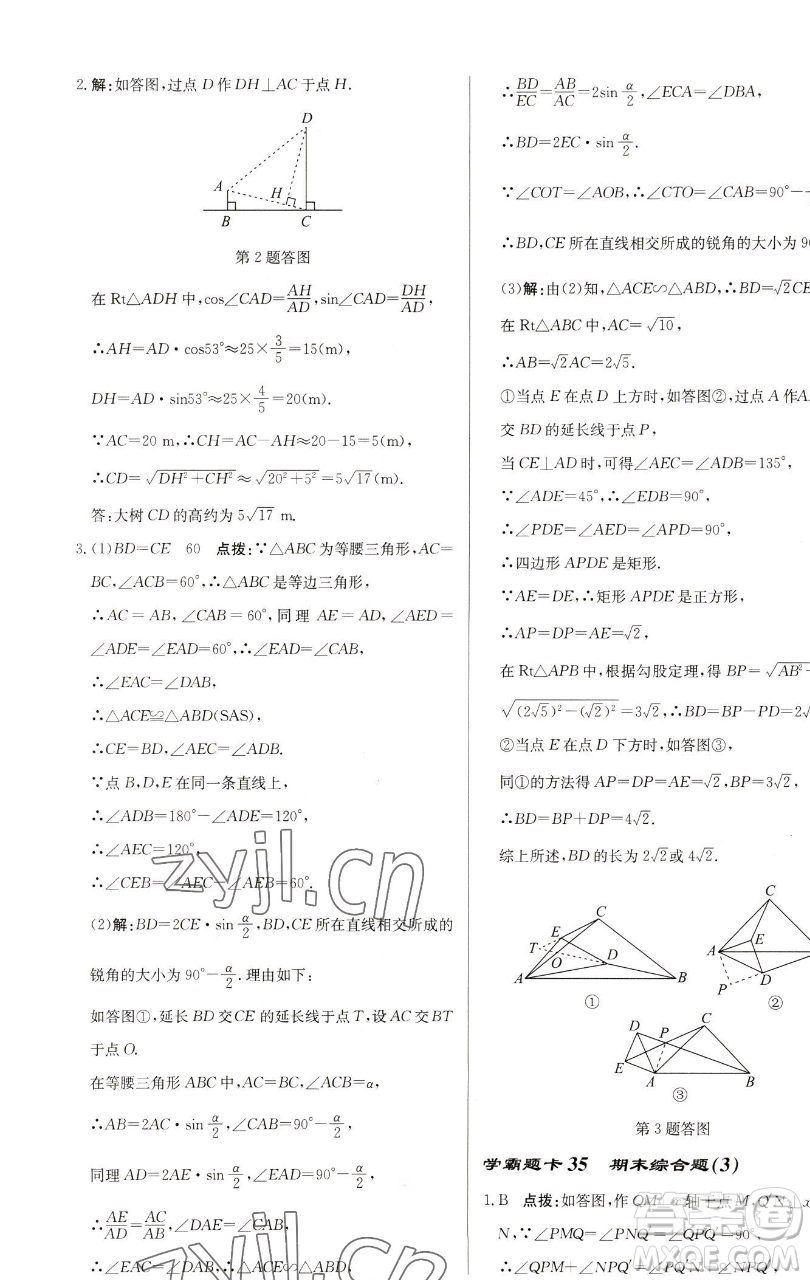 2. 解:如答图,过点 D 作 DH⊥AC 于点 H.
D
A
H
B
C
第 2 题答图
在 Rt△ADH 中, cos∠CAD=AH/AD, sin∠CAD=DH/AD,
∴AH=AD·cos53°≈25×3/5=15(m),
DH=AD·sin53°≈25×4/5=20(m).
∵AC=20 m,∴CH=AC-AH≈20-15=5(m),
∴CD=√(DH²+CH²)≈√(20²+5²)=5√17(m).
答:大树 CD 的高约为 5√17 m.
3. (1)BD=CE 60 点拨:∵△ABC 为等腰三角形,AC=
BC,∠ACB=60°,∴△ABC 是等边三角形,
∴AC=AB,∠CAB=60°,同理 AE=AD,∠AED=
∠ADE=∠EAD=60°,∴∠EAD=∠CAB,
∴∠EAC=∠DAB,
∴△ACE≌△ABD(SAS),
∴CE=BD,∠AEC=∠ADB.
∵点 B,D,E 在同一条直线上,
∴∠ADB=180°-∠ADE=120°,
∴∠AEC=120°,
∴∠CEB=∠AEC-∠AEB=60°.
(2)解:BD=2CE·sin α/2,BD,CE 所在直线相交所成的
锐角的大小为 90°-α/2. 理由如下:
如答图①,延长 BD 交 CE 的延长线于点 T,设 AC 交 BT
于点 O.
在等腰三角形 ABC 中,AC=BC,∠ACB=α,
∴AB=2AC·sin α/2,∠CAB=90°-α/2.
同理 AD=2AE·sin α/2,∠EAD=90°-α/2,
∴AE/AD=AC/AB,∠DAE=∠CAB,
∴∠EAC=∠DAB,∴△ACE∽△ABD,
∴BD/EC=AB/AC=2sin α/2,∠ECA=∠DBA,
∴BD=2EC·sin α/2.
∵∠COT=∠AOB,∴∠CTO=∠CAB=90°-
∴BD,CE 所在直线相交所成的锐角的大小为 90
(3)解:由(2)知,△ACE∽△ABD,∴BD=√2CE
在 Rt△ABC 中,AC=√10,
∴AB=√2AC=2√5.
①当点 E 在点 D 上方时,如答图②,过点 A 作 A
交 BD 的延长线于点 P,
当 CE⊥AD 时,可得∠AEC=∠ADB=135°,
∵∠ADE=45°,∴∠EDB=90°,
∴∠PDE=∠AED=∠APD=90°,
∴四边形 APDE 是矩形.
∵AE=DE,∴矩形 APDE 是正方形,
∴AP=DP=AE=√2,
在 Rt△APB 中,根据勾股定理,得 BP=√AB²-
√((2√5)²-(√2)²)=3√2,∴BD=BP-PD=2√
②当点 E 在点 D 下方时,如答图③,
同①的方法得 AP=DP=AE=√2,BP=3√2,
∴BD=BP+DP=4√2.
综上所述,BD 的长为 2√2或 4√2.
C
E
T
O
D
A
B
①
C
A
E
D
P
②
C
D
P
E
A
B
③
第 3 题答图
学霸题卡 35 期末综合题(3)
1. B 点拨:如答图,作 QM⊥x 轴于点 M,Q′N⊥x
N,∵∠PMQ=∠PNQ′=∠QPQ′=90°,
∴∠QPM+∠NPQ′=
zyjl.cn
答案圈